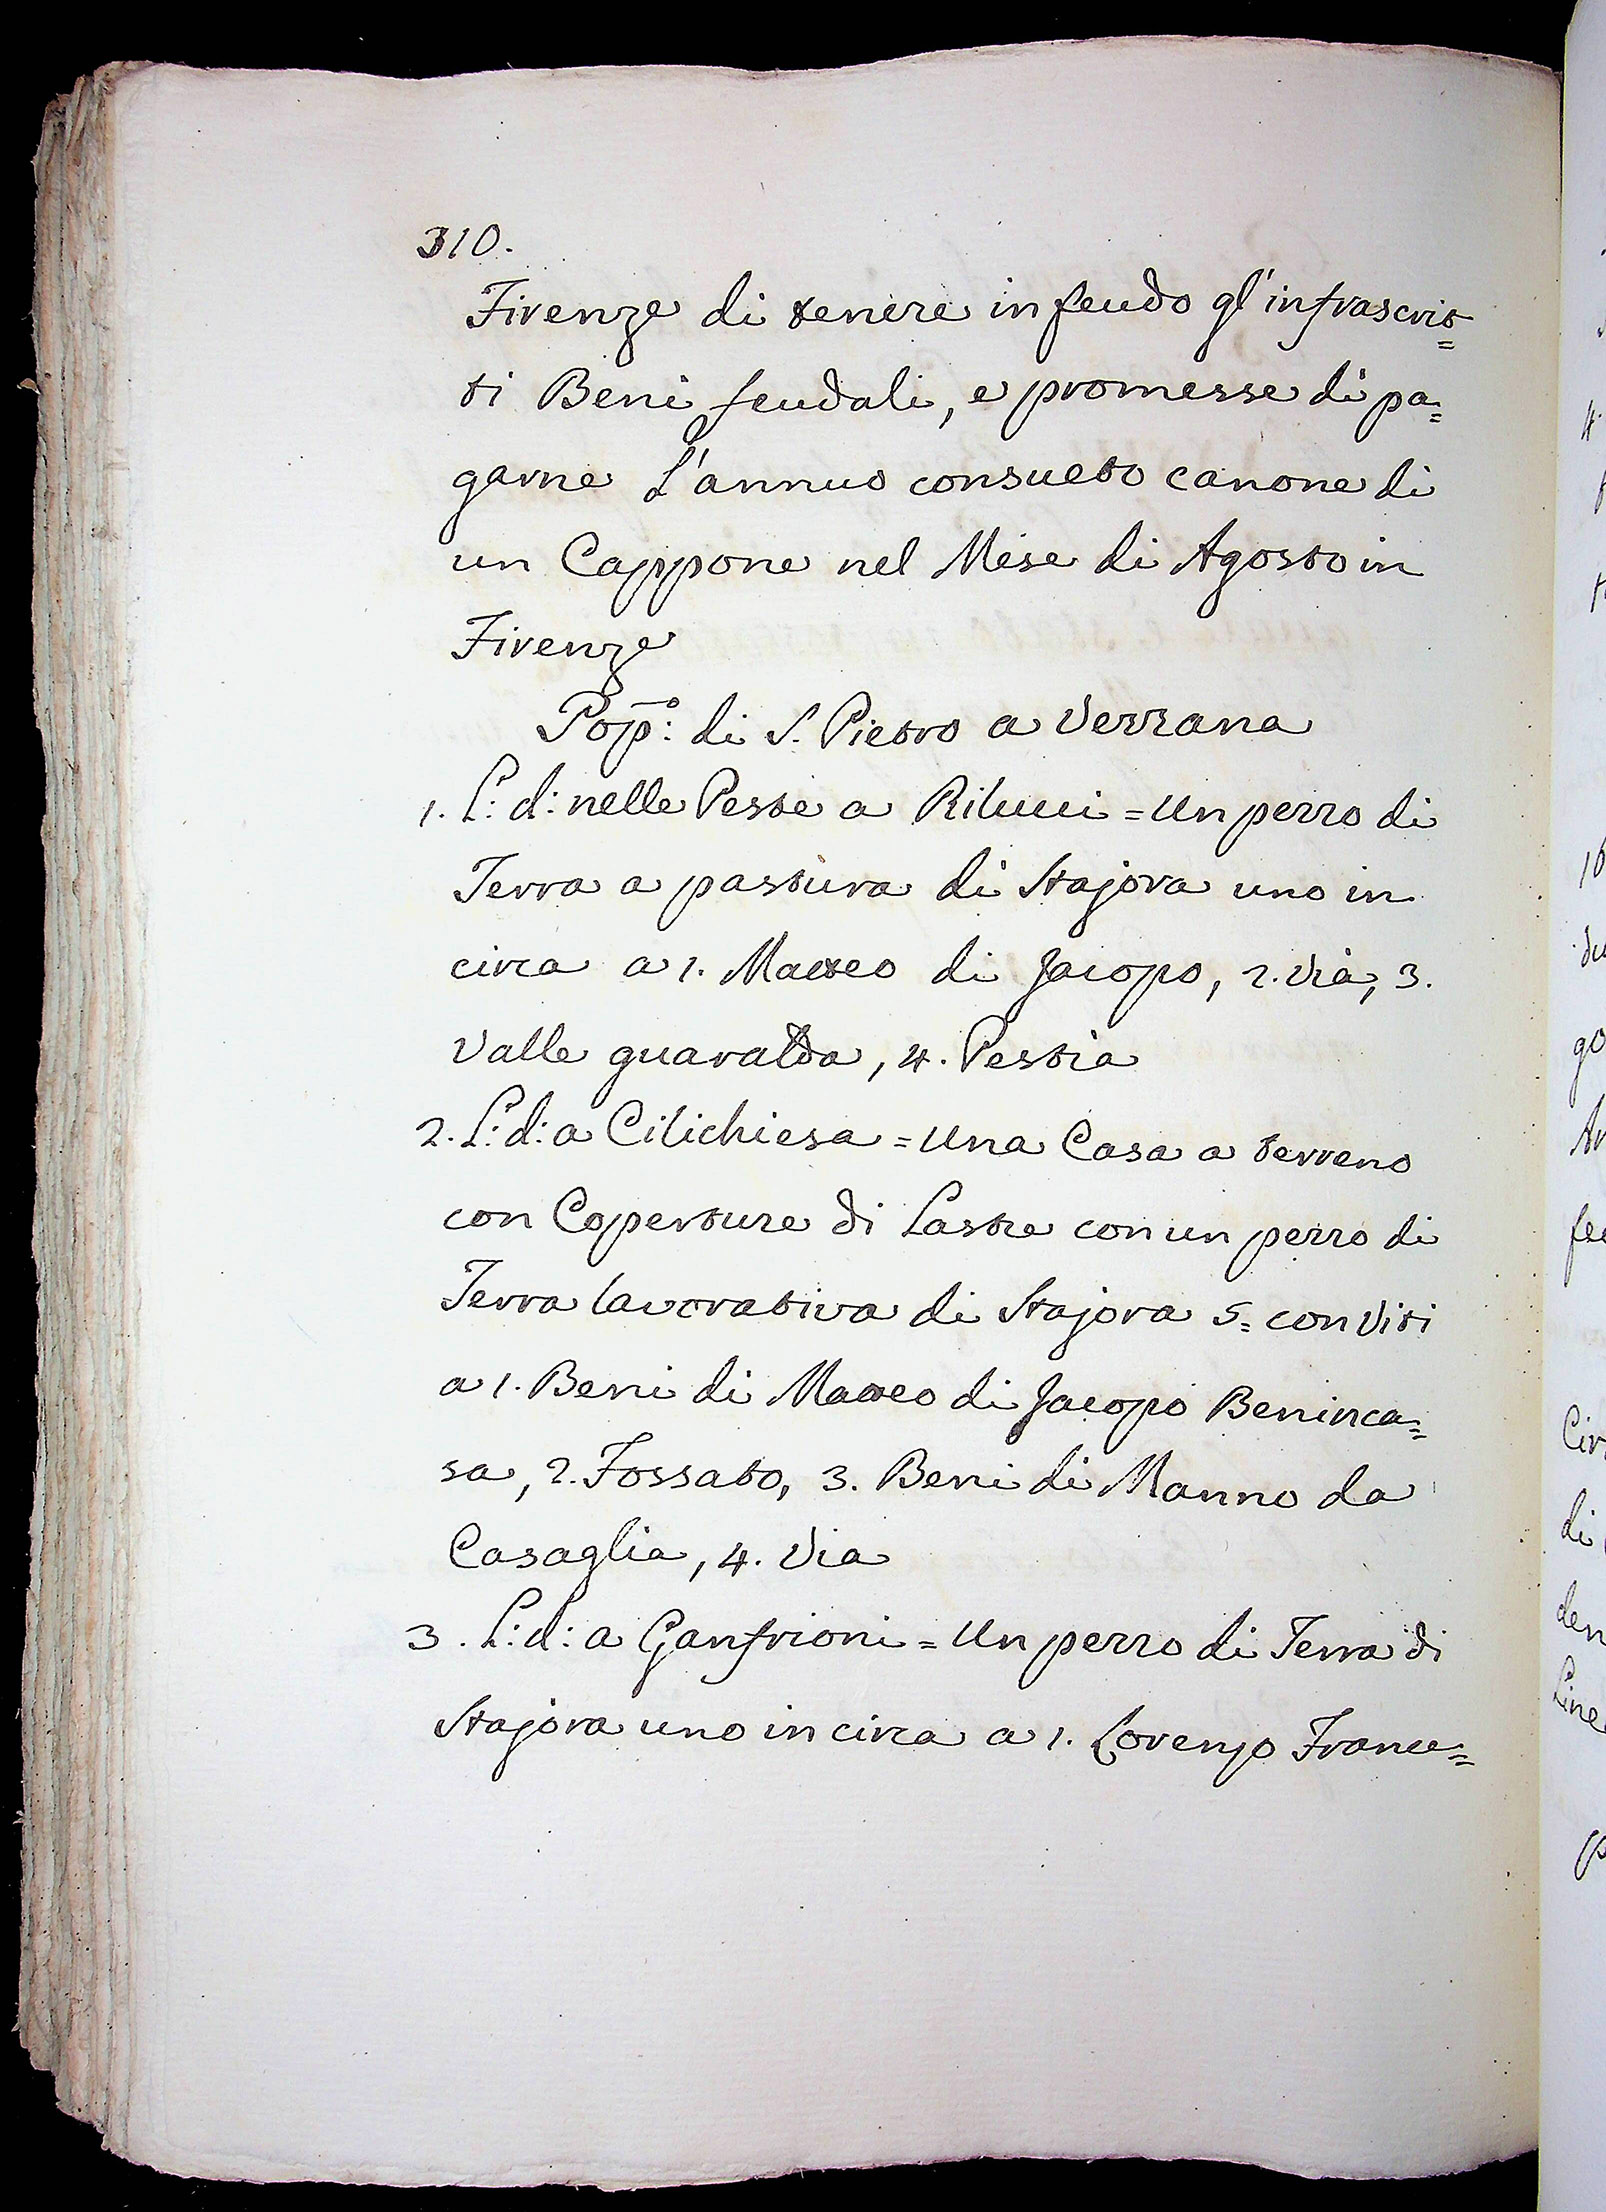 310.
Firenze di tenere in feudo gl'infrascrit=
ti Beni feudali, e promesse di pa=
garne L'annuo consueto canone di
un Cappone nel Mese di Agosto in
Firenze
Pop.º: di S. Pietro a Vezzana
1. L: d: nelle Peste a Rilucci = Un pezzo di
Terra a pastura di Stajora uno in
circa a 1. Matteo di Jacopo, 2. Via, 3.
Valle guaralda, 4. Pestia
2. L: d: a Cilichiesa = Una Casa a terreno
con Coperture di Lastre con un pezzo di
Terra lavorativa di Stajora 5= con Viti
a 1. Beni di Matteo di Jacopo Beninca=
sa, 2. Fossato, 3. Beni di Manno da
Casaglia, 4. Via
3. L: d: a Ganfrioni = Un pezzo di Terra di
Stajora uno in circa a 1. Lorenzo France=